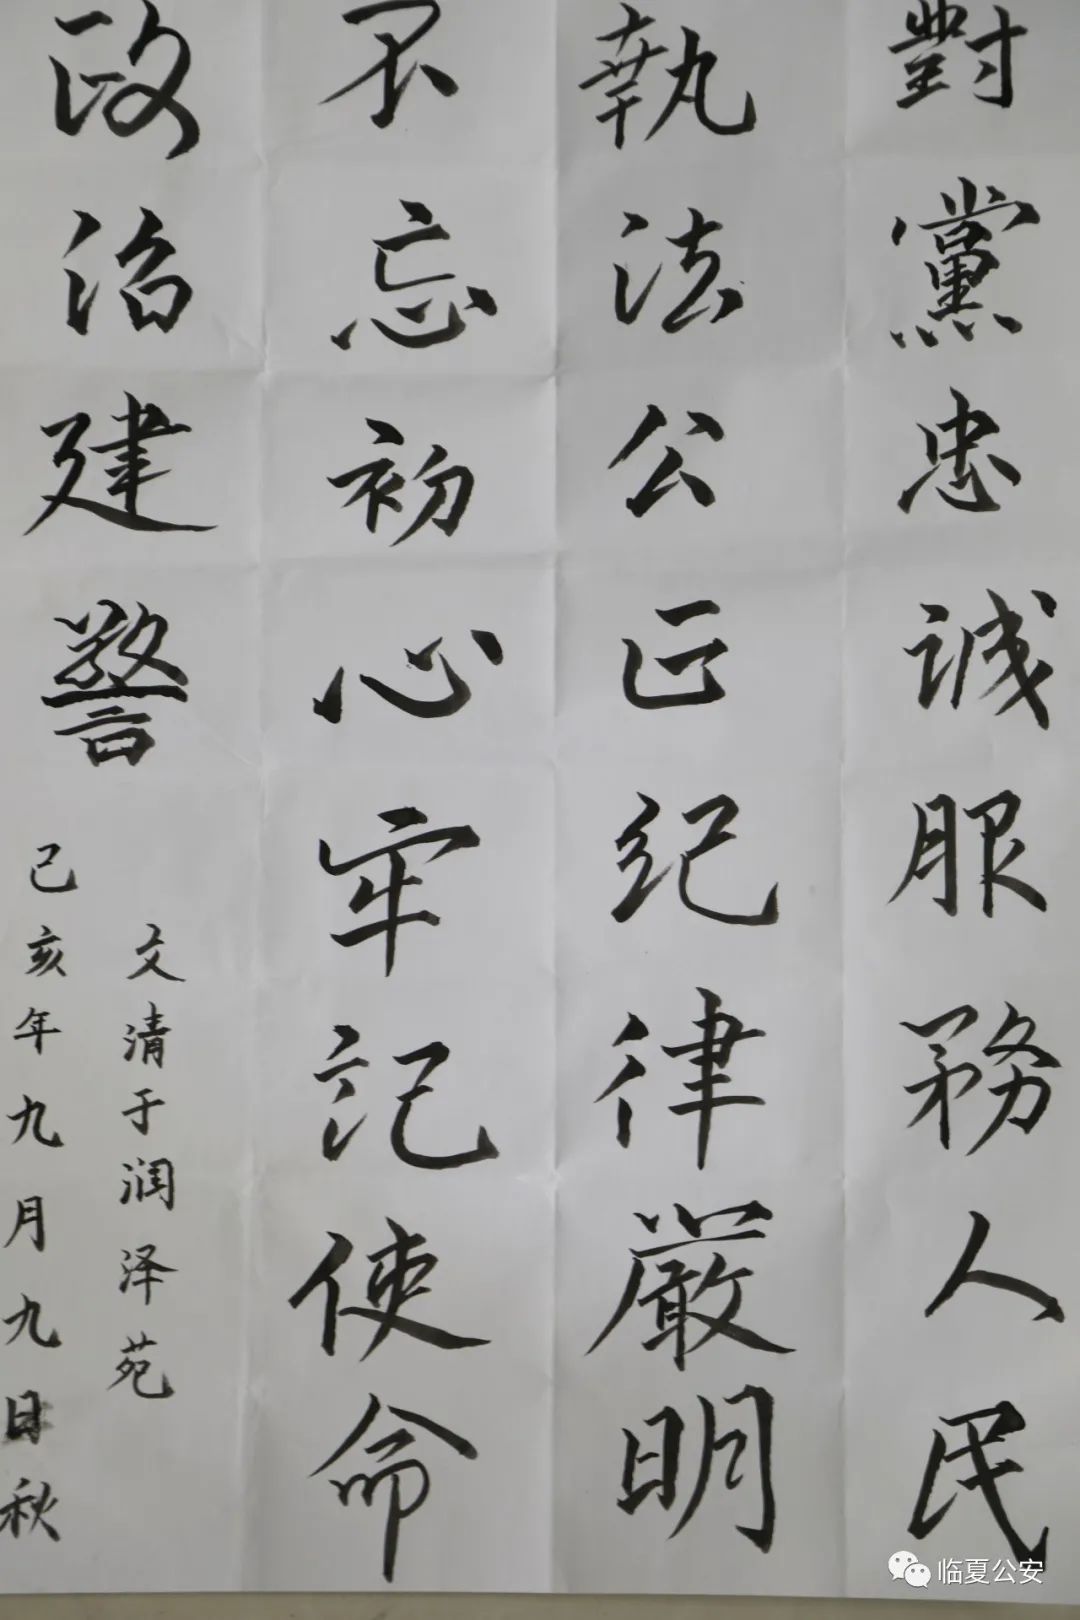 對黨忠誠服務人民
執法公正紀律嚴明
不忘初心牢記使命
政治建警
文清于润泽苑
己亥年九月九日秋
临夏公安